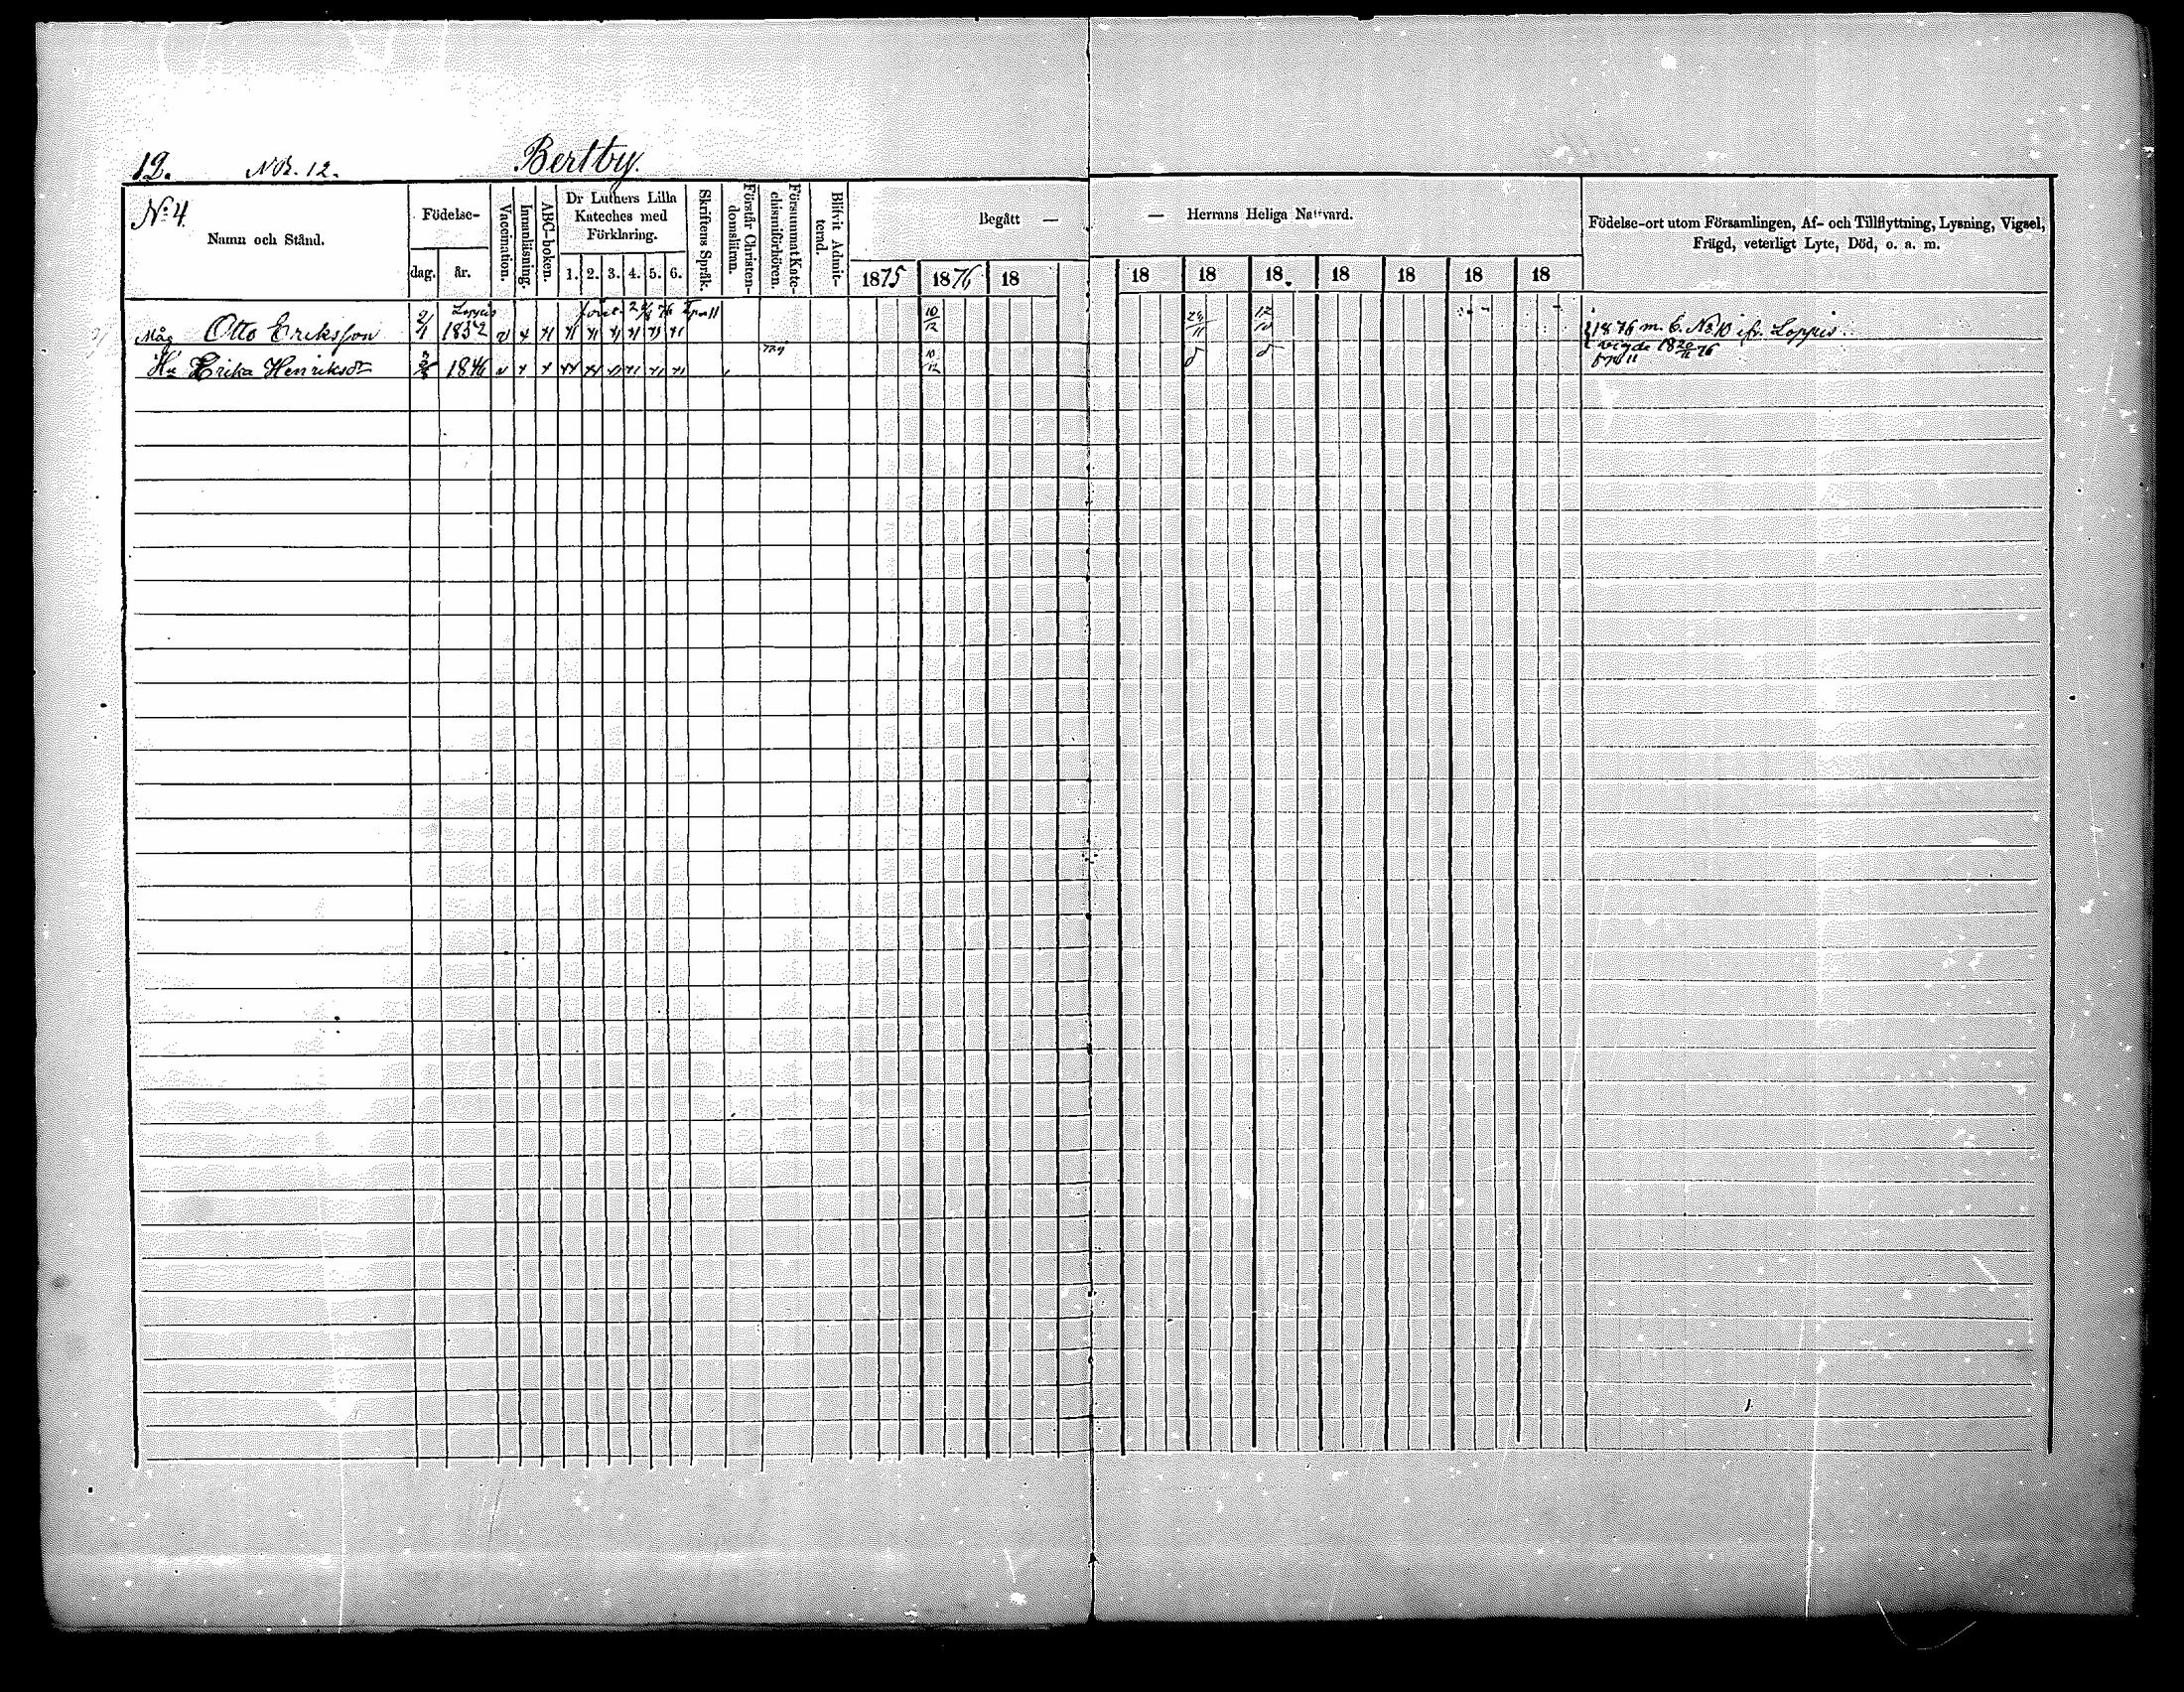 12. No. 12. Bertby.
No. 4.
Namn och Stånd.
Födelse-
dag. år.
Vaccination.
Innanläsning.
ABC-boken.
Dr Luthers Lilla
Kateches med
Förklaring.
1. 2. 3. 4. 5. 6.
Skriftens Språk.
Förstår Christen-
domsläran.
Försummt Kate-
chismiförhören.
Blifvit Admit-
terad.
Begått —
1875 1876 18
— Herrans Heliga Nattvard.
18 18 18 18 18 18 18
Födelse-ort utom Församlingen, Af- och Tillflyttning, Lysning, Vigsel,
Frägd, veterligt Lyte, Död, o. a. m.
Måg Otto Eriksson 2/1 Loppis 1852 10/12 12/10 1876 m. b. No. 10 ifr. Loppis
Hu Erika Henriksdr 1846 10/12 vigde 18 20/11 76